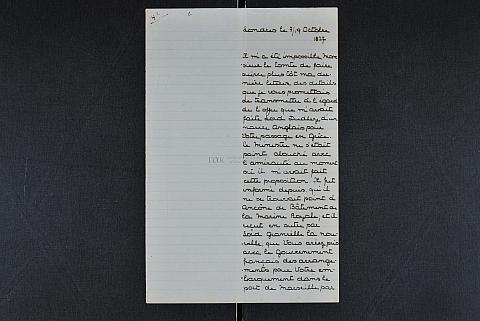 Londres le 7/19 Octobre
1827
Il m'a été impossible, Mon
sieur le Comte de faire
suivre plus tôt ma der
nière lettre, des détails
que je vous promettais
de transmettre à l'égard
de l'offre que m'avait
faite Lord Dudley d'un
navire Anglais pour
Votre passage en Grèce.
Le Ministre ne s'était
point abouché avec
l'amirauté au moment
où il m'avait fait
cette proposition. Il fut
informé depuis, qu'il
ne se trouvait point à
Ancône de Bâtiment de
la Marine Royale, et il
reçut en outre par
Lord Granville la nou
velle, que Vous aviez pris
avec le Gouvernement
français des arrange-
ments pour Votre em-
barquement dans le
port de Marseille, par